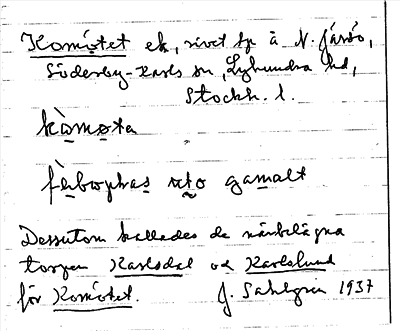 Komötet ek, rivet tp å N. Järsö,
Söderby-Karls sn, Lyhundra hd,
Stockh. l.
kòmøta
gamalt
Dessutom kallades de närbelägna
torpen Karlsdal och Karlslund
för Komötet. J. Sahlgren 1937